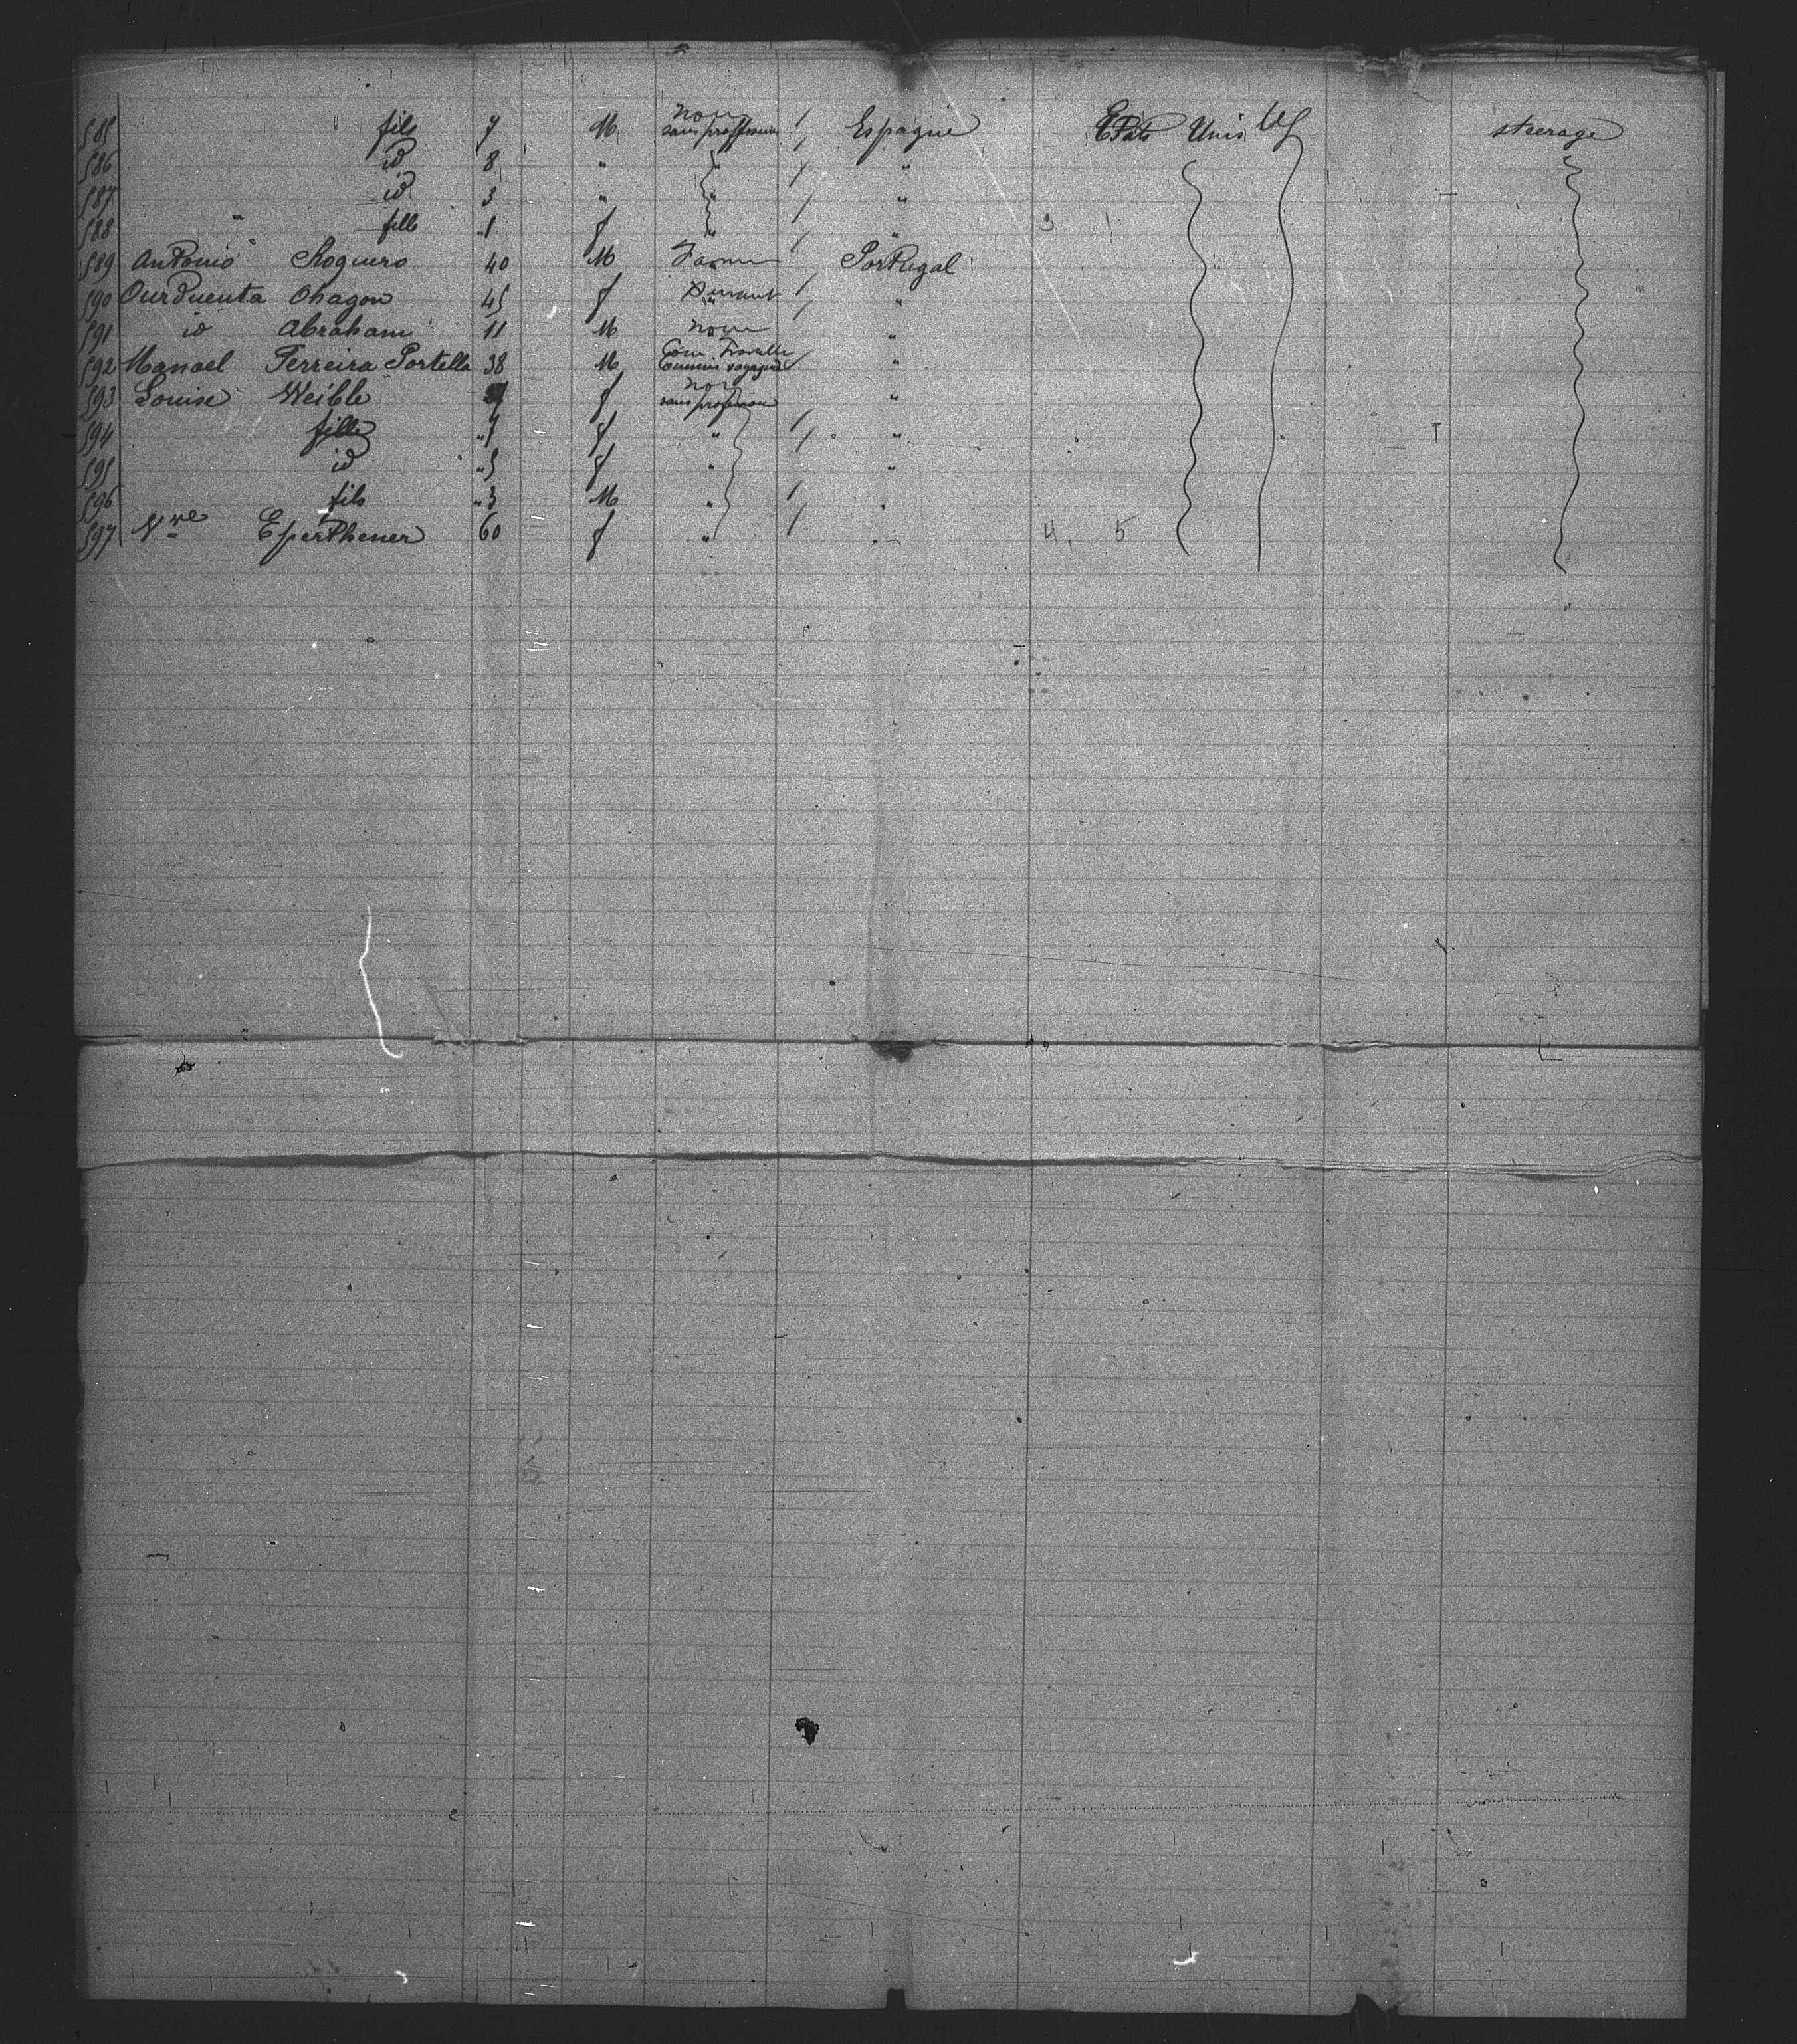 585 fils 7 M non sans profession / Espagne Etats Unis steerage
586 id 8 " " / "
587 id 3 " " / "
588 " fille "1 f " / " 3 1
589 Antonio Roguero 40 M Farmer / Portugal
590 Ourduenta Chagon 45 f Servant / "
591 id Abraham 11 M none / "
592 Manoel Ferreira Portella 38 M Com. Traveller Commis voyageur / "
593 Louise Weible f non sans profession "
594 fille "7 f " / "
595 id "5 f " "
596 fils "3 M " / "
597 Vve Eperthener 60 f " / " 4, 5